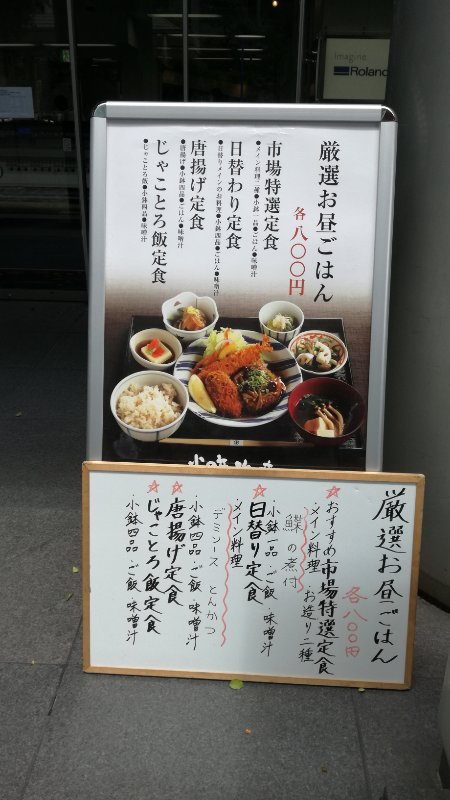 Imagine.
Roland
厳選お昼ごはん
各八〇〇円
市場特選定食
●メイン料理二種●小鉢一品●ごはん●味噌汁
日替わり定食
●日替りメインのお料理●小鉢四品●ごはん●味噌汁
唐揚げ定食
●唐揚げ●小鉢四品●ごはん●味噌汁
じゃことろ飯定食
●じゃことろ飯●小鉢四品●味噌汁
厳選お昼ごはん
各八〇〇円
☆おすすめ市場特選定食
・メイン料理 お造り二種
鰈の煮付
・小鉢一品・ご飯・味噌汁
☆日替り定食
・メイン料理
デミソース とんかつ
・小鉢四品・ご飯・味噌汁
☆唐揚げ定食
・小鉢四品・ご飯・味噌汁
☆じゃことろ飯定食
・小鉢四品・ご飯・味噌汁